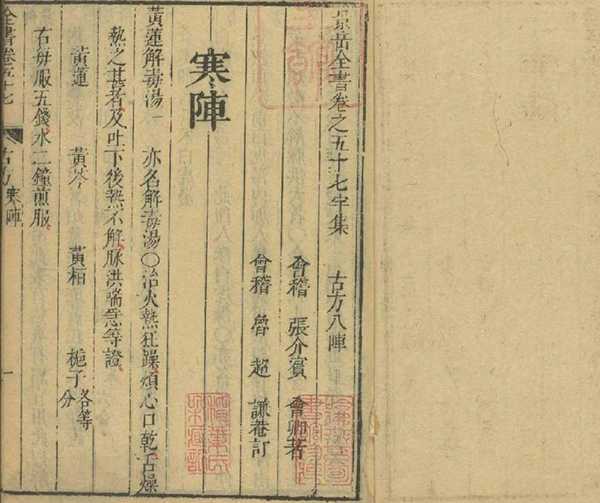 景岳全書卷之五十七宇集 古方八陣
會稽 張介賓 會卿著
會稽 魯超 謙菴訂
寒陣
黃連解毒湯一 亦名解毒湯○治火熱狂躁煩心口乾舌燥
熱之甚者及吐下後熱不解脉洪喘急等證
黃連 黃芩 黃栢 梔子各等分
右每服五錢水二鐘煎服
全書卷五十七 古方 寒陣 一